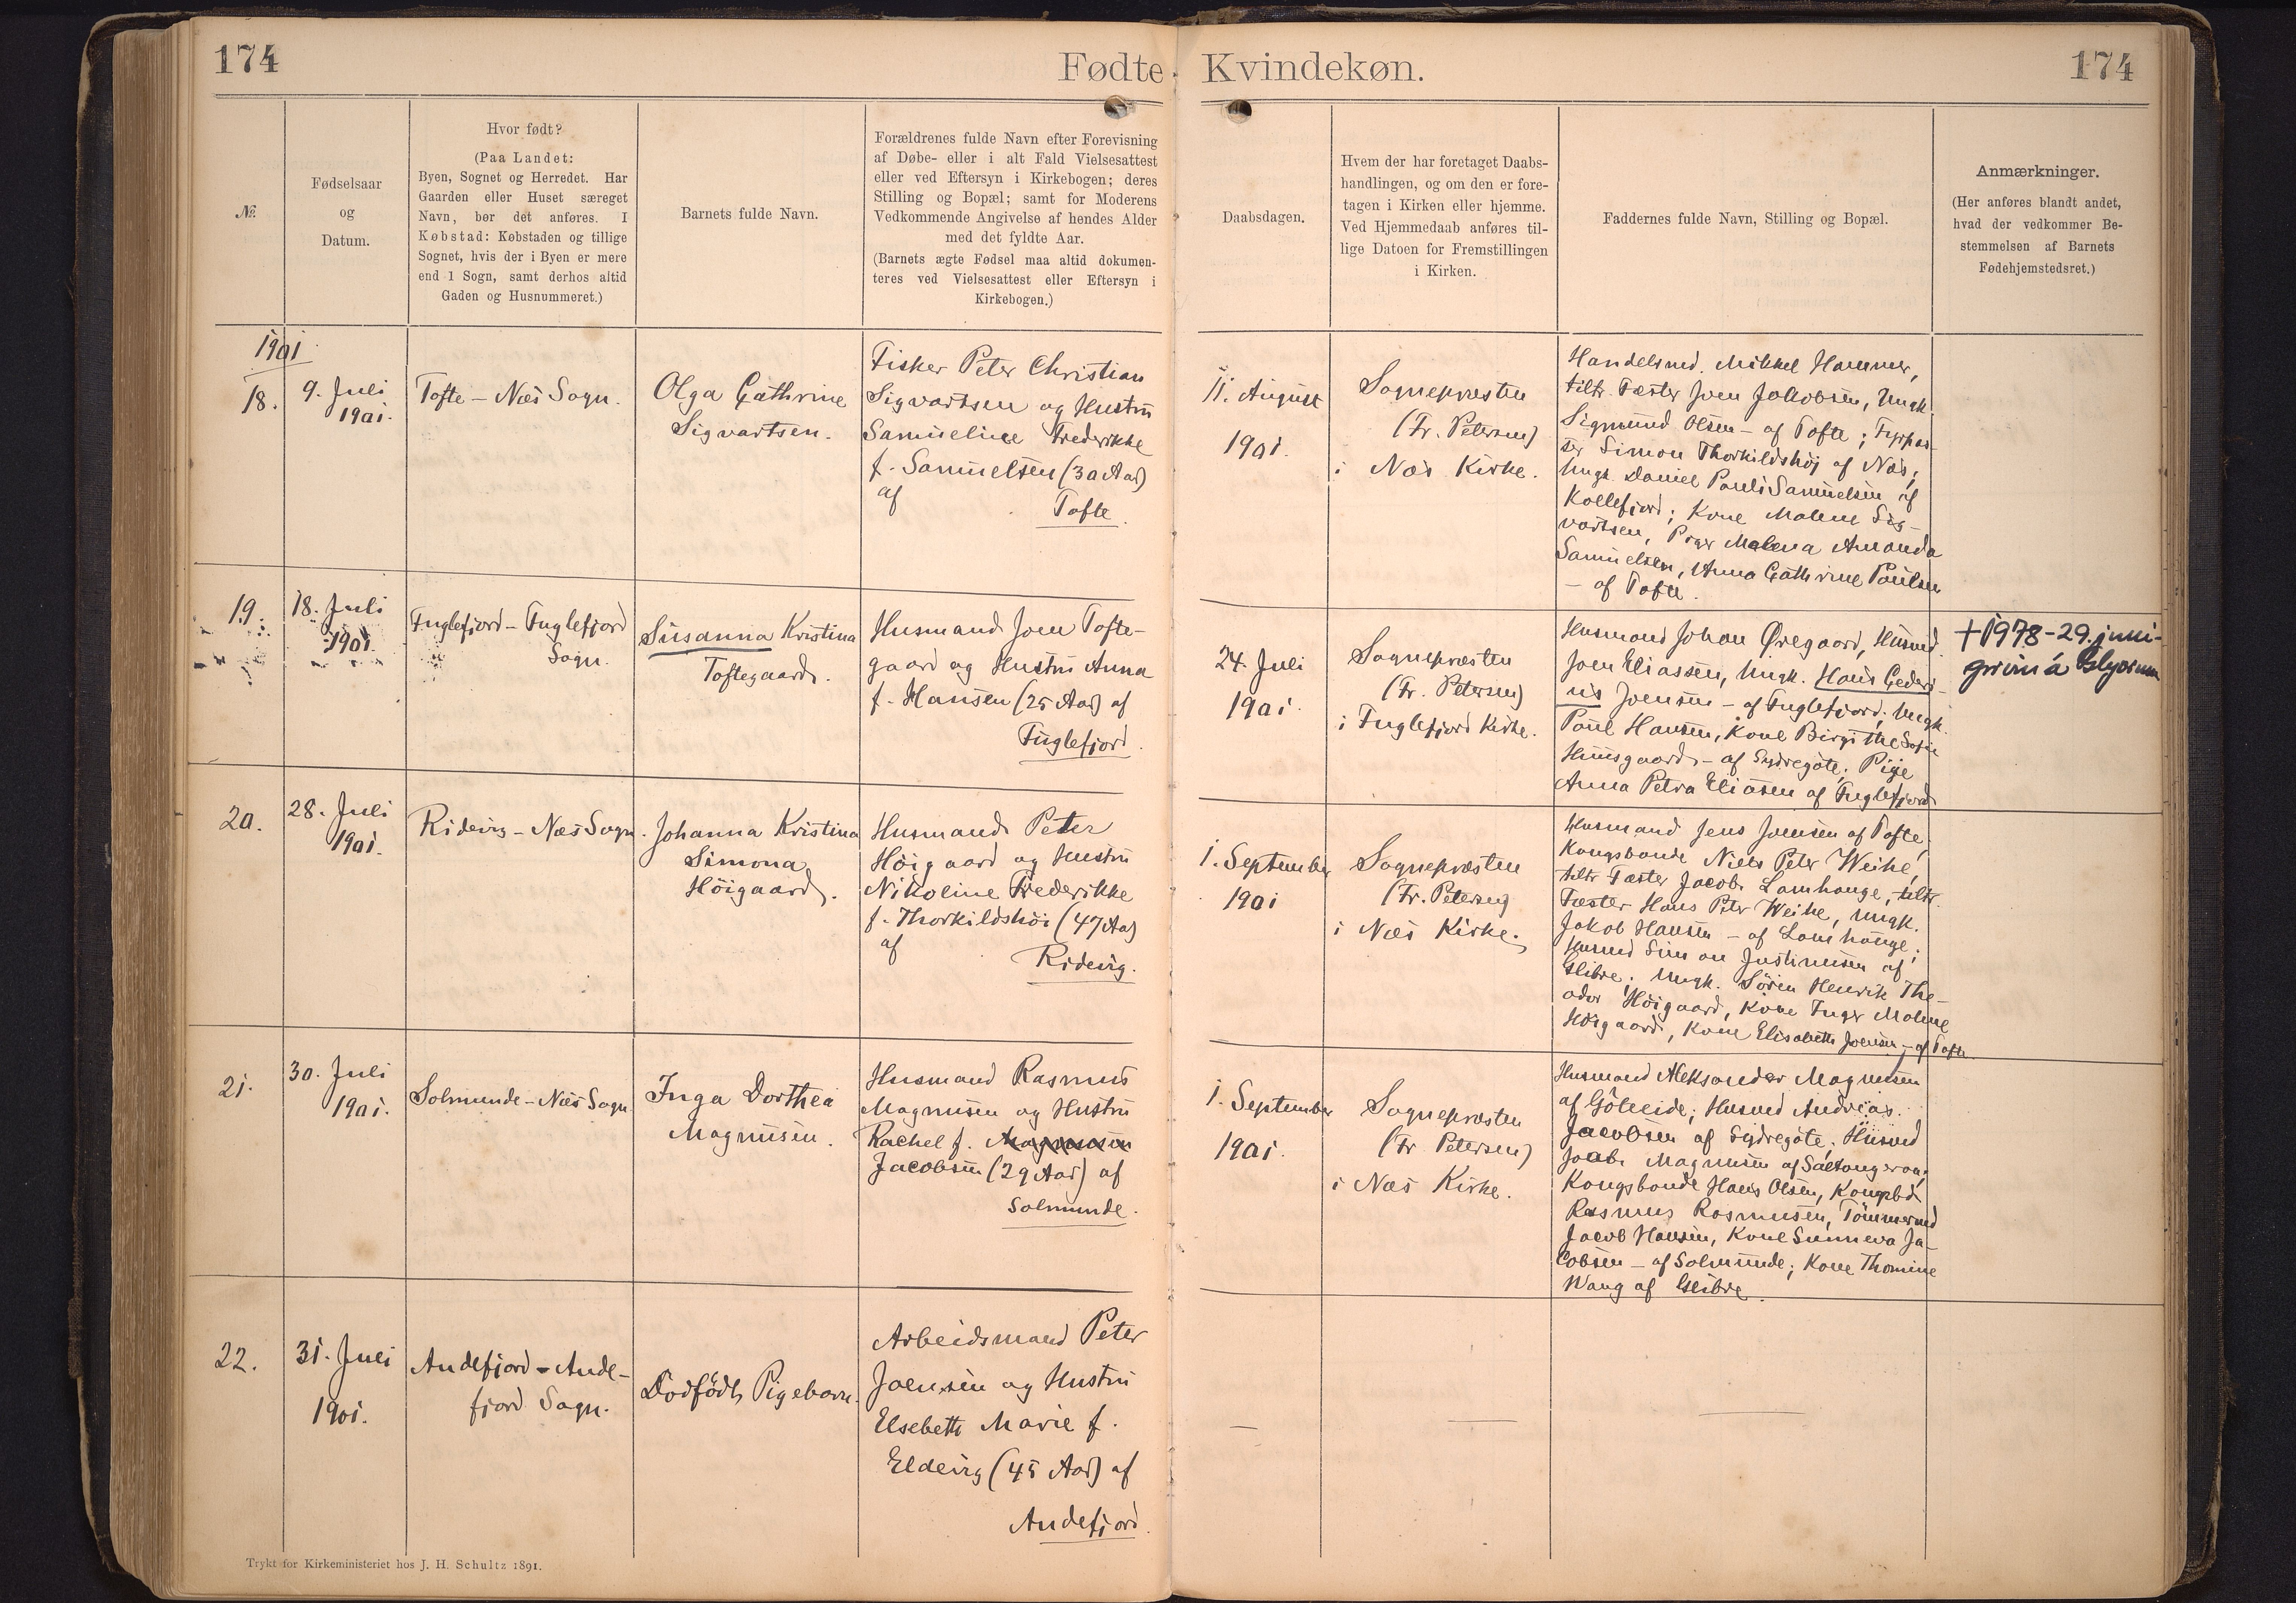 174
Fødte Kvindekøn.
174
№
Fødselsaar
og
Datum.
Hvor født?
(Paa Landet:
Byen, Sognet og Herredet. Har
Gaarden eller Huset særeget
Navn, bør det anføres. I
Købstad: Købstaden og tillige
Sognet, hvis der i Byen er mere
end 1 Sogn, samt derhos altid
Gaden og Husnummeret.)
Barnets fulde Navn.
Forældrenes fulde Navn efter Forevisning
af Døbe- eller i alt Fald Vielsesattest
eller ved Eftersyn i Kirkebogen; deres
Stilling og Bopæl; samt for Moderens
Vedkommende Angivelse af hendes Alder
med det fyldte Aar.
(Barnets ægte Fødsel maa altid dokumen-
teres ved Vielsesattest eller Eftersyn i
Kirkebogen.)
Daabsdagen.
Hvem der har foretaget Daabs-
handlingen, og om den er fore-
tagen i Kirken eller hjemme.
Ved Hjemmedaab anføres til-
lige Datoen for Fremstillingen
i Kirken.
Faddernes fulde Navn, Stilling og Bopæl.
Anmærkninger.
(Her anføres blandt andet,
hvad der vedkommer Be-
stemmelsen af Barnets
Fødehjemstedsret.)
1901
18.
9. Juli
1901.
Tofte – Næs Sogn.
Olga Cathrine
Sigvartsen.
Fisker Peter Christian
Sigvartsen og Hustru
Samueline Frederikke
f. Samuelsen (30 Aar)
af
Tofte.
11. August
1901.
Sognepræsten
(Fr. Petersen)
i Næs Kirke.
Handelsmd. Mikkel Hammer,
tiltr. Fæster Joen Jakobsen, Ungk.
Sigmund Olsen – af Tofte;
Simon Thorkildshøj af Næs;
Ungk. Daniel Pauli Samuelsen af
Kollefjord; Kone Malene Sig-
vartsen, Piger Malena Amanda
Samuelsen, Anna Cathrine Poulsen
– af Tofte.
19.
18. Juli
1901.
Fuglefjord – Fuglefjord
Sogn.
Susanna Kristina
Toftegaard.
Husmand Joen Tofte-
gaard og Hustru Anna
f. Hansen (25 Aar) af
Fuglefjord.
24. Juli
1901.
Sognepræsten
(Fr. Petersen)
i Fuglefjord Kirke.
Husmand Johan Øregaard, Husmd.
Joen Eliassen, Ungk. Hans
Joensen – af Fuglefjord; Ungk.
Poul Hansen, Kone Birgithe Sofie
Huusgaard – af Sydregøte; Pige
Anna Petra Eliasen af Fuglefjord
† 1978 - 29. juni -
grivin á
20.
28. Juli
1901.
Ridevig – Næs Sogn.
Johanna Kristina
Simona
Höigaard.
Husmand Peter
Höigaard og Hustru
Nikoline Frederikke
f. Thorkildshöi (47 Aar)
af
Ridevig.
1. September
1901
Sognepræsten
(Fr. Petersen)
i Næs Kirke.
Husmand Jens Joensen af Tofte,
Kongsbonde Niels Peter Weihe,
tiltr. Fæster Jacob Lamhauge, tiltr.
Fæster Hans Peter Weihe, Ungk.
Jakob Hansen – af Lamhauge;
Husmd Simon Justinusen af
Glibre; Ungk. Sören Henrik The-
odor Höigaard, Kone Inger Malene
Höigaard, Kone Elisabeth Joensen – af Tofte.
21.
30. Juli
1901.
Solmunde – Næs Sogn
Inga Dorthea
Magnusen.
Husmand Rasmus
Magnusen og Hustru
Rachel f. Magnusen
Jacobsen (29 Aar) af
Solmunde.
1. September
1901.
Sognepræsten
(Fr Petersen)
i Næs Kirke.
Husmand Aleksander Magnusen
af Göteeide; Husmd Andreas
Jacobsen af Sydregøte; Husmd
Joab Magnusen af Saltangeraa;
Kongsbonde Hans Olsen, Kongsbd
Rasmus Rasmusen, Tömmermd
Jacob Hansen, Kone Sunneva Ja-
cobsen – af Solmunde; Kone Thomine
Wang af Glibre.
22.
31. Juli
1901.
Andefjord – Ande-
fjord Sogn.
Dødfödt Pigebarn.
Arbeidsmand Peter
Joensen og Hustru
Elsebeth Marie f.
Eldevig (45 Aar) af
Andefjord.
—
—
—
Trykt for Kirkeministeriet hos J. H. Schultz 1891.